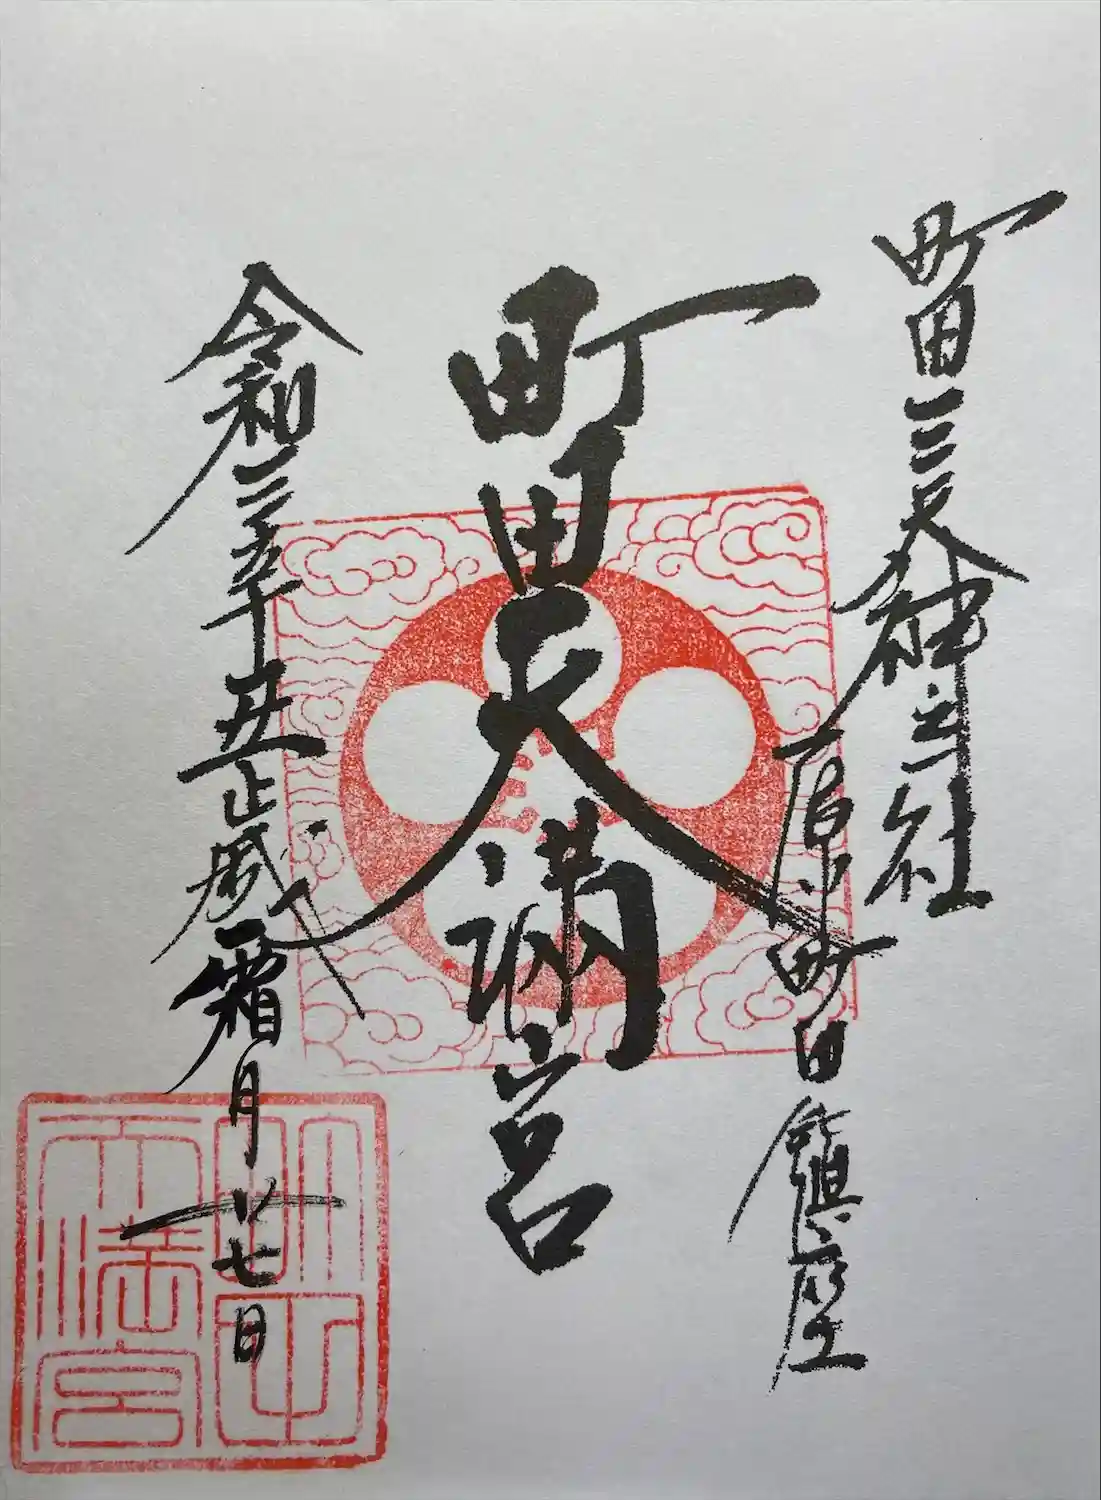 町田三天神之一社
原町田鎮座
町田天満宮
令和三年丑歳霜月廿七日
天満宮